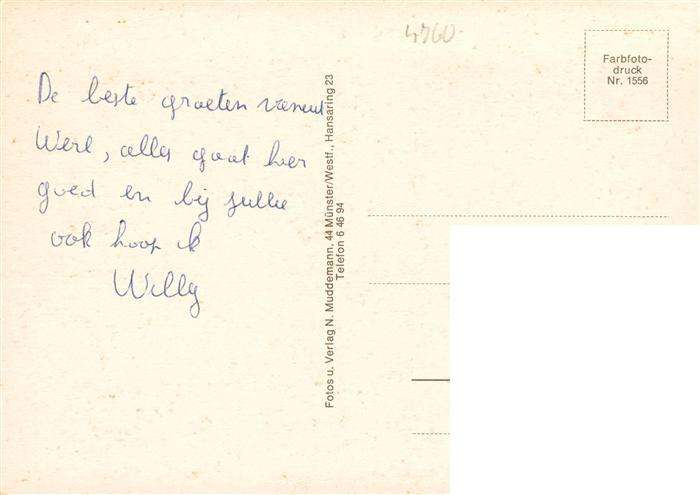 De beste groeten vanuit
Werl, alles gaat hier
goed en bij jullie
ook hoop ik
Willy
4760
Fotos u. Verlag N. Muddemann, 44 Münster/Westf., Hansaring 23
Telefon 6 46 94
Farbfoto-
druck
Nr. 1556